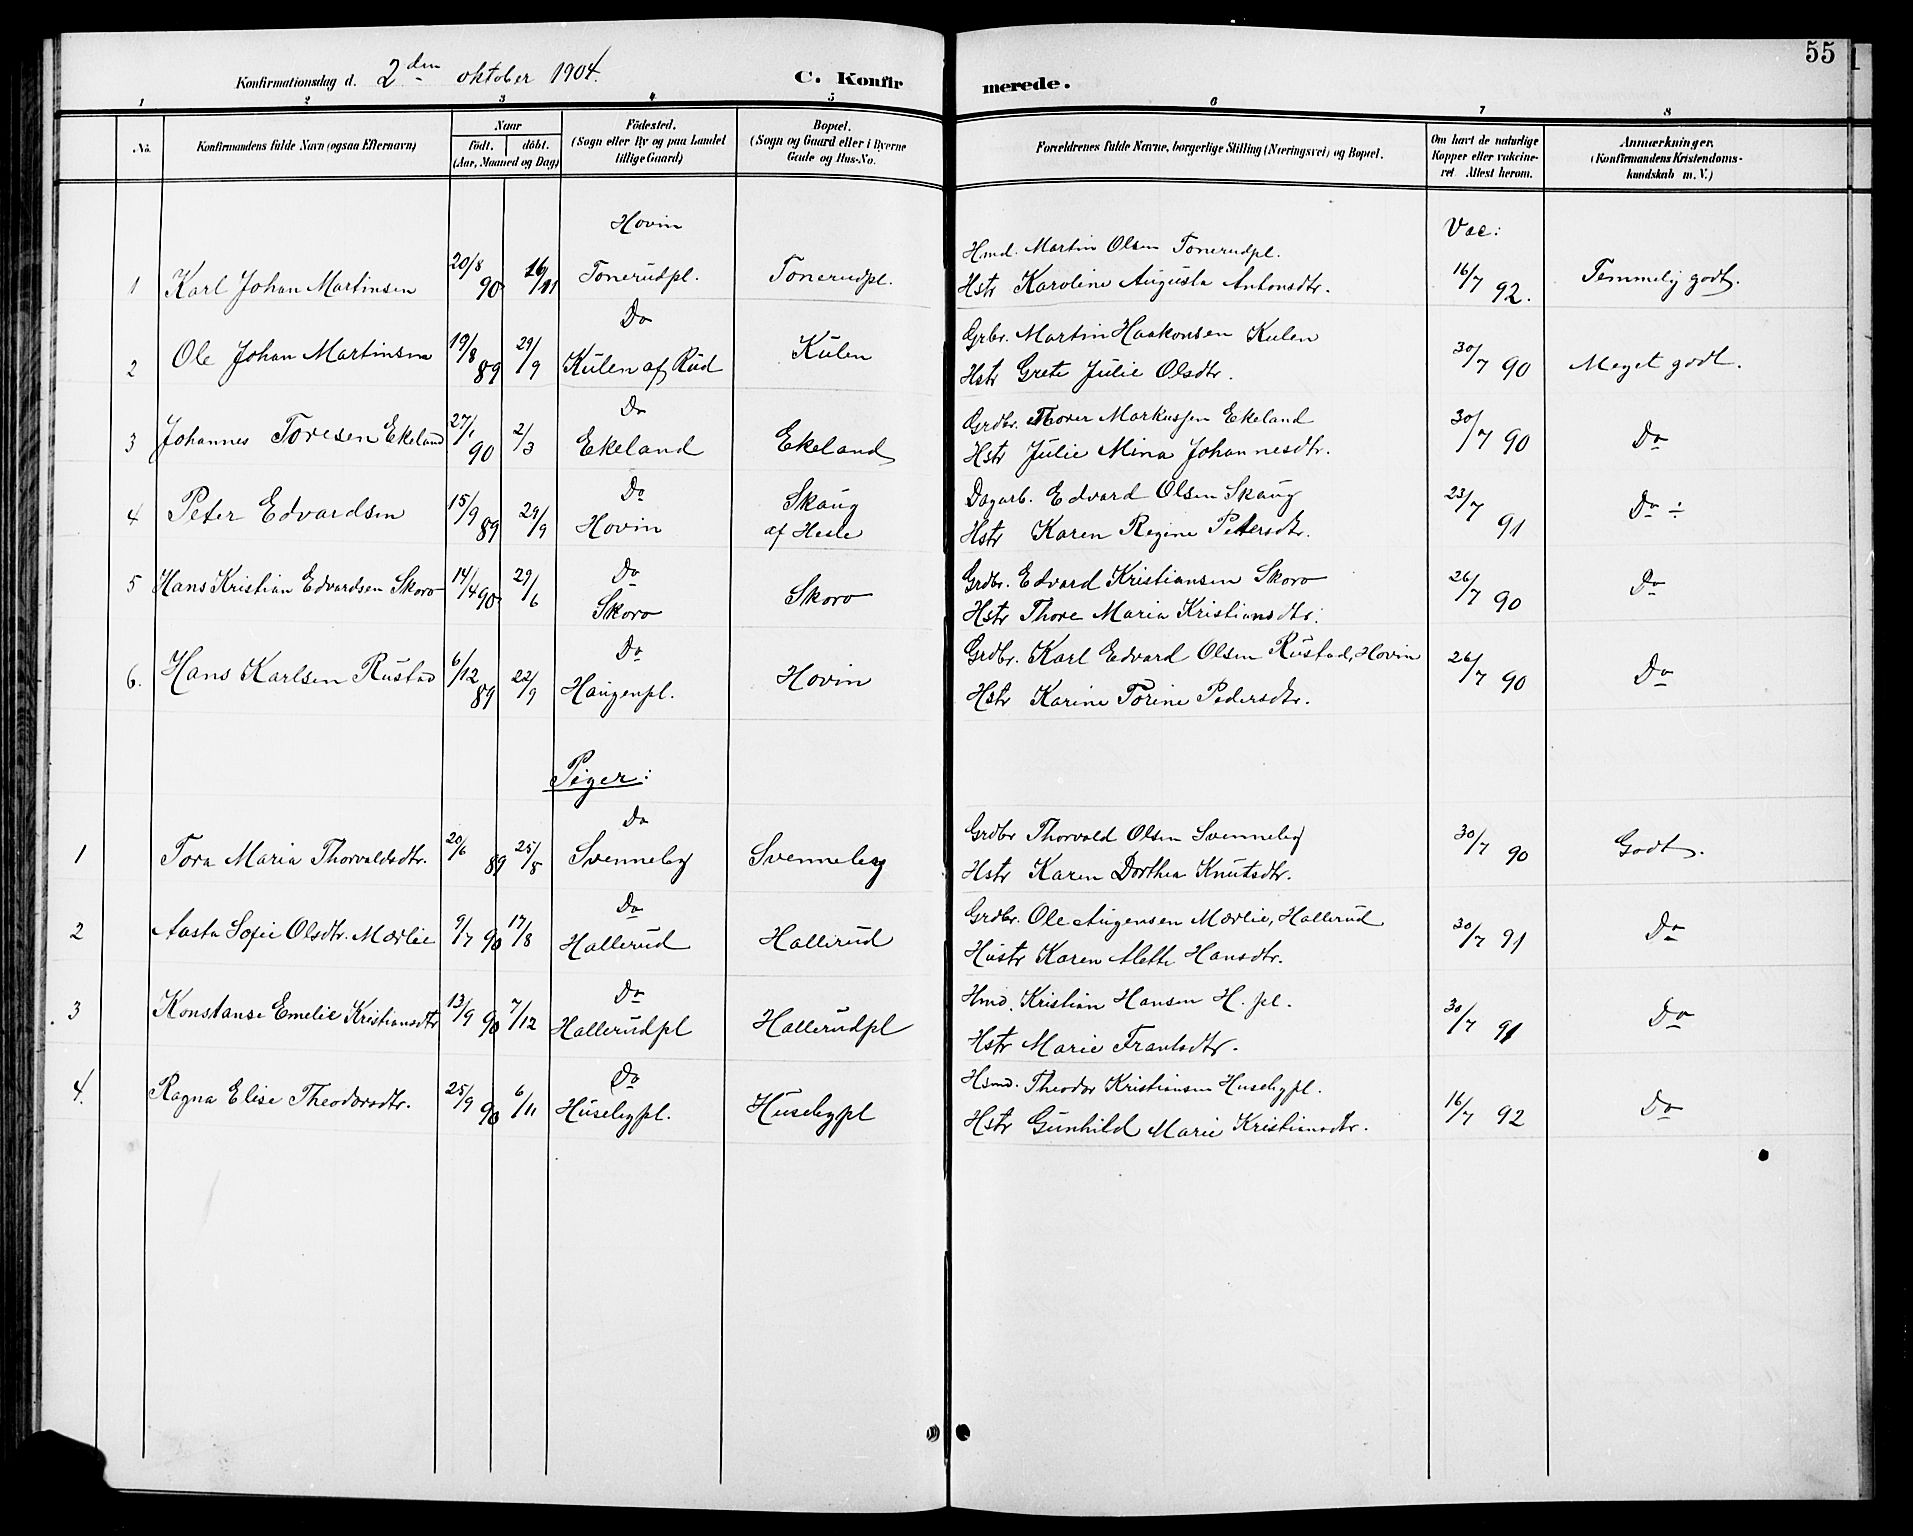 55
Konfirmationsdag d. 2den oktober 1904. C. Konfir merede.
1 2 3 4 5 6 7 8
No. Konfirmandens fulde Navn (ogsaa Efternavn) Naar Födested. Bopæl. Forældrenes fulde Navne, borgerlige Stilling (Næringsvei) og Bopæl. Om havt de naturlige Anmærkninger.
födt. döbt. (Sogn eller By og paa Landet (Sogn og Gaard eller i Byerne Kopper eller vakcine- (Konfirmandens Kristendoms-
(Aar, Maaned og Dag) tillige Gaard) Gade og Hus-No. ret Attest herom. kundskab m. V.)
Hovin Vac:
Hmd. Martin Olsen Tonerudpl.
1 Karl Johan Martinsen 20/8 90 16/11 Tonerudpl. Tonerudpl. Hstr Karoline Augusta Antonsdtr. 16/7 92. Temmelig godt.
Do Grbr. Martin Haakonsen Kulen
2 Ole Johan Martinsen 19/8 89 29/9 Kulen af Rud Kulen Hstr Grete Julie Olsdtr. 30/7 90 Meget godt.
Do Grdbr. Thorer Markussen Ekeland
3 Johannes Toresen Ekeland 27/1 90 2/3 Ekeland Ekeland Hstr Julie Mina Johannesdtr. 30/7 90 Do
Do Skaug Dagarb. Edvard Olsen Skaug
4 Peter Edvardsen 15/9 89 29/9 Hovin af Hesle Hstr Karen Regine Petersdtr. 23/7 91 Do ÷
Do Grdbr. Edvard Kristiansen Skoro
5 Hans Kristian Edvardsen Skoro 14/4 90 29/6 Skoro Skoro Hstr Thore Maria Kristiansdtr. 26/7 90 Do
Do Grdbr. Karl Edvard Olsen Rustad, Hovin
6. Hans Karlsen Rustad 6/12 89 22/9 Haugenpl. Hovin Hstr Karine Torine Pedersdtr. 26/7 90 Do
Piger:
Do Grdbr Thorvald Olsen Svenneby
1 Tora Maria Thorvaldsdtr. 20/6 89 25/8 Svenneby Svenneby Hstr Karen Dorthea Knutsdtr. 30/7 90 Godt.
Do Grdbr. Ole Augensen Mærlie, Hallerud
2 Aasta Sofie Olsdtr. Mærlie 9/7 90 17/8 Hallerud Hallerud Hustr Karen Alette Hansdtr. 30/7 91 Do
Do Hmd. Kristian Hansen H. pl.
3 Konstanse Emelie Kristiansdtr 13/9 90 7/12 Hallerudpl Hallerudpl Hstr Marie Frantsdtr. 30/7 91 Do
Do Hsmd. Theodor Kristiansen Husebypl.
4. Ragna Elise Theodorsdtr. 25/9 90 6/11 Husebypl. Husebypl Hstr Gunhild Marie Kristiansdtr. 16/7 92 Do